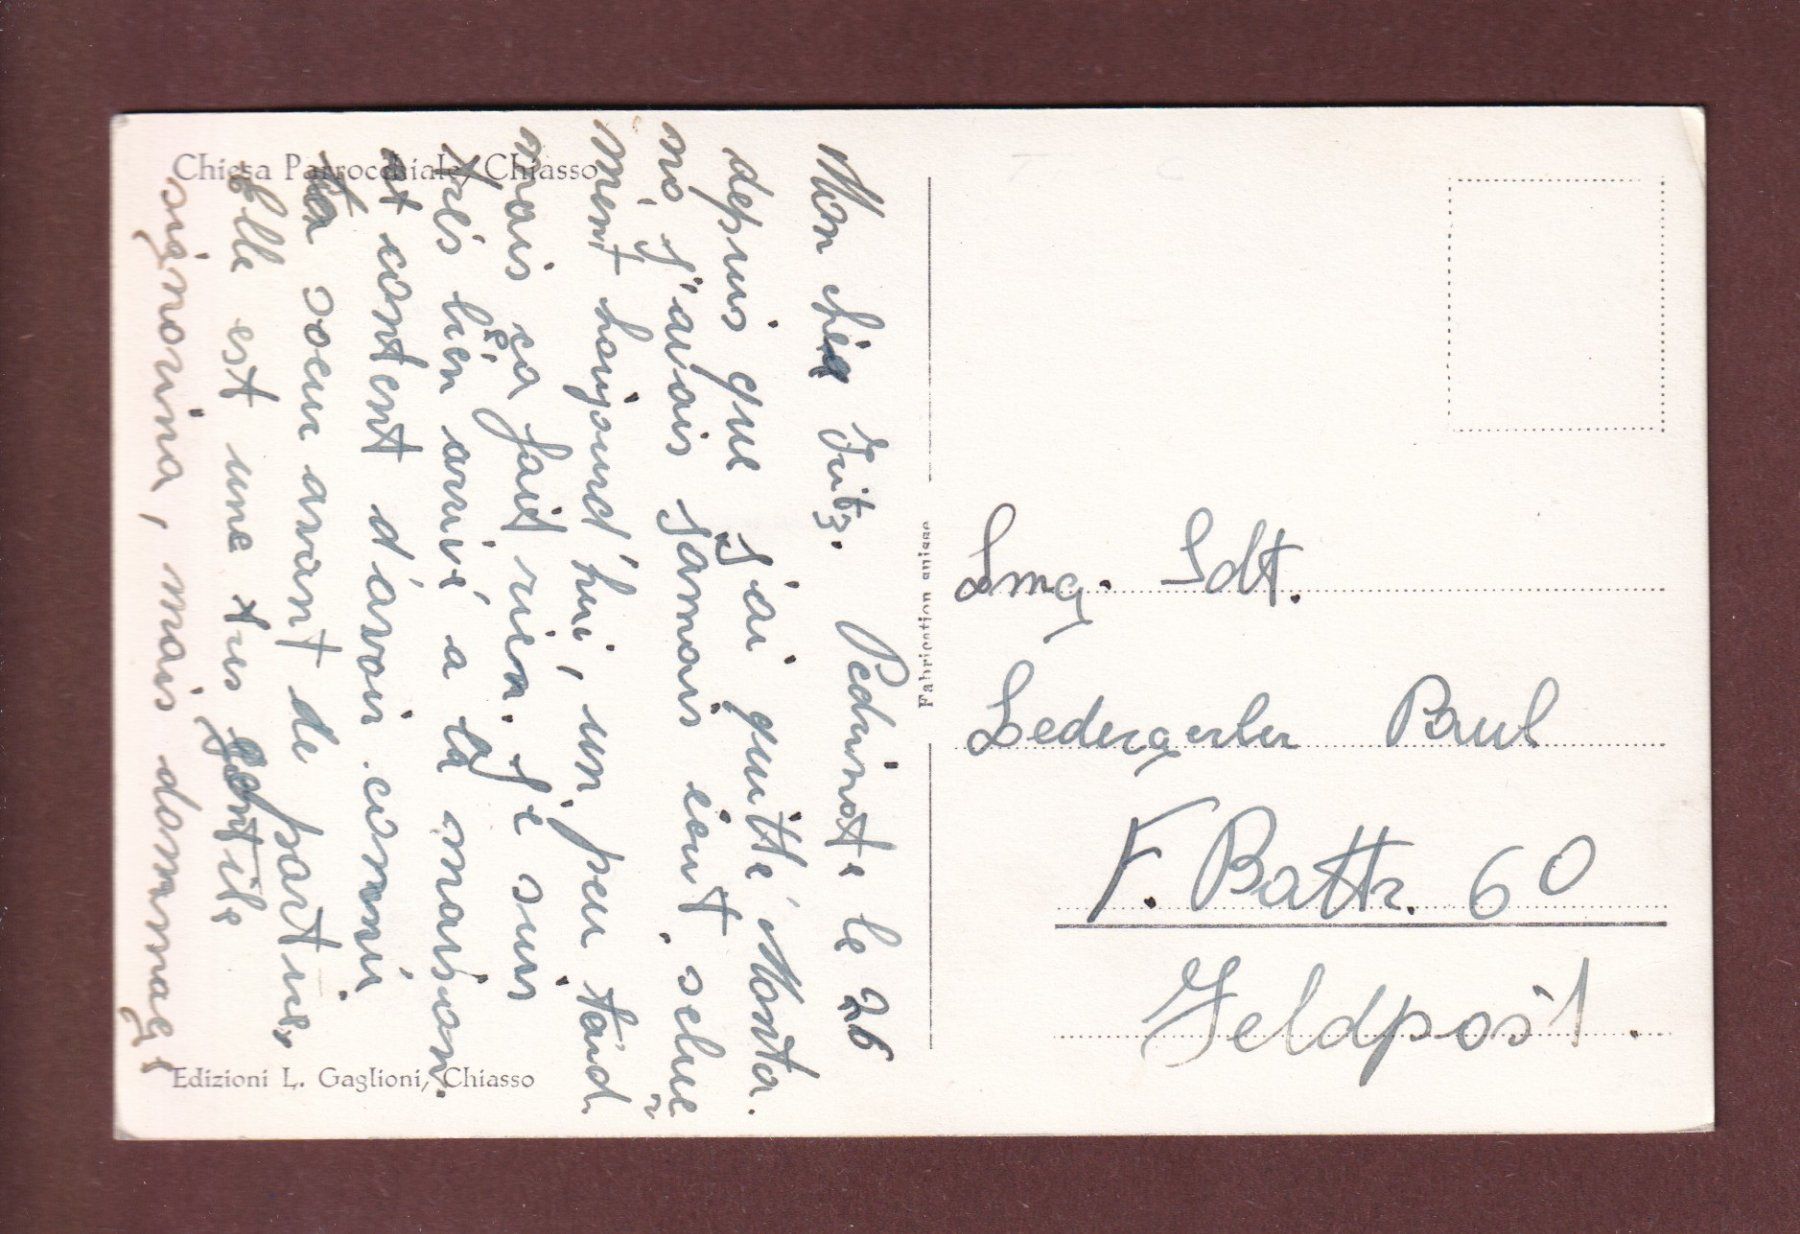 Chiesa Parrocchiale, Chiasso
Mon cher Fritz. Pedrinate le 26
depuis que j'ai quitté Monta.
no j'avais jamais ecut, selue
ment houjourd'hui, un peu taid
mais ça fait rien. Je suis
très bien arrivé a la maison.
et content d'avoir connu
ta soeur avant de partire,
Elle est une tres gentile
signorina, mais dommage
Edizioni L. Gaglioni, Chiasso
Fabrication suisse
Smg. Sdt.
Ledergerber Paul
F. Battr. 60
Feldpost.